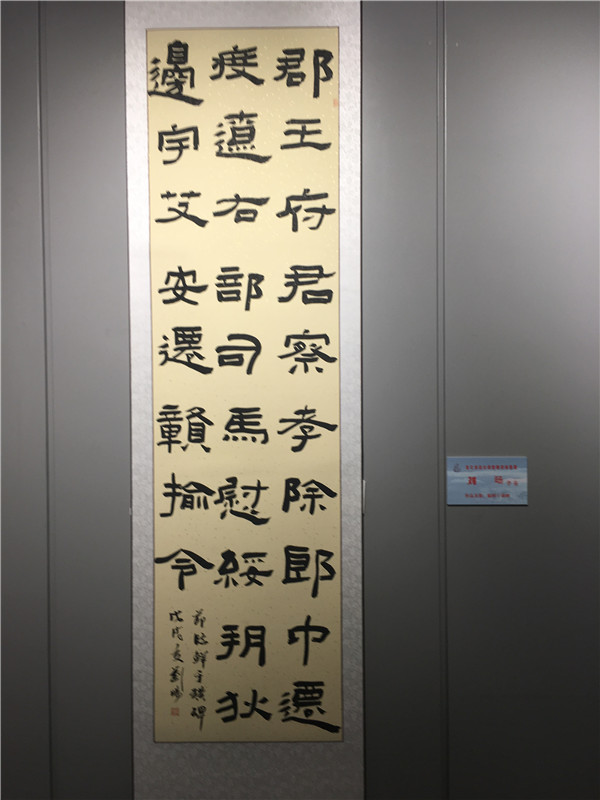 郡王府君察孝除郎中遷
度遼右部司馬慰綏朔狄
邊宇艾安遷贛揄令
節臨鮮于璜碑
戊戌夏劉